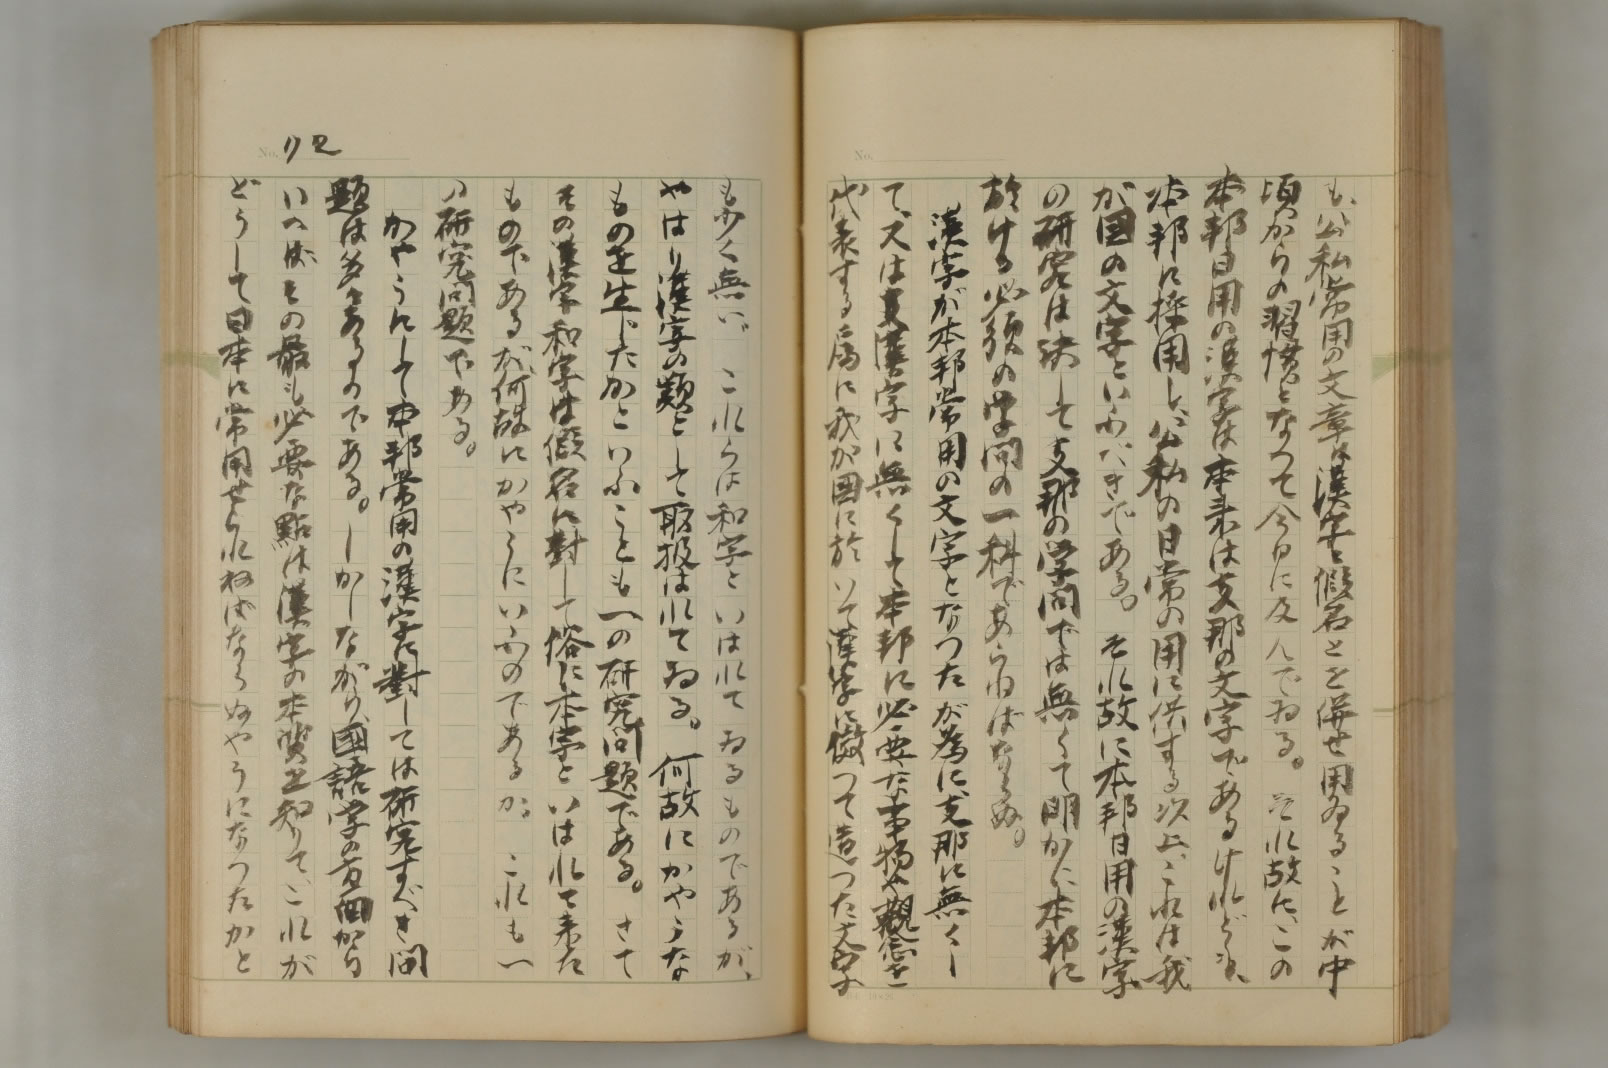 も、公私常用の文章は漢字と假名とを併せ用ゐることが中
頃からの習慣となつて今日に及んでゐる。それ故に、この
本邦日用の漢字は本来は支那の文字であるけれども、
本邦に採用し、公私の日常の用に供する以上、これは我
が国の文字といふべきである。それ故に本邦日用の漢字
の研究は決して支那の学問では無くて明かに本邦に
於ける必須の学問の一科であらねばならぬ。
漢字が本邦常用の文字となつたが為に、支那に無くし
て、又は支那漢字に無くして本邦に必要な事物や観念を
代表する為に我が国に於いて漢字に倣つて造つた文字
も少く無い。これらは和字といはれてゐるものであるが、
やはり漢字の類として取扱はれてゐる。何故にかやうな
ものを生じたかといふことも一の研究問題である。さて
その漢字和字は假名に對して俗に本字といはれて来た
ものであるが、何故にかやうにいふのであるか、これも一
の研究問題である。
かやうにして本邦常用の漢字に對しては研究すべき問
題は多々あるのである。しかしながら、國語学の方面から
いへばその最も必要な點は漢字の本質を知りて、これが
どうして日本に常用せられねばならぬやうになつたかと
No. 172
No.